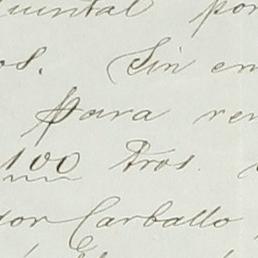 quintal por
os. Sin em
para ren
100 Bros.
dor Carballo